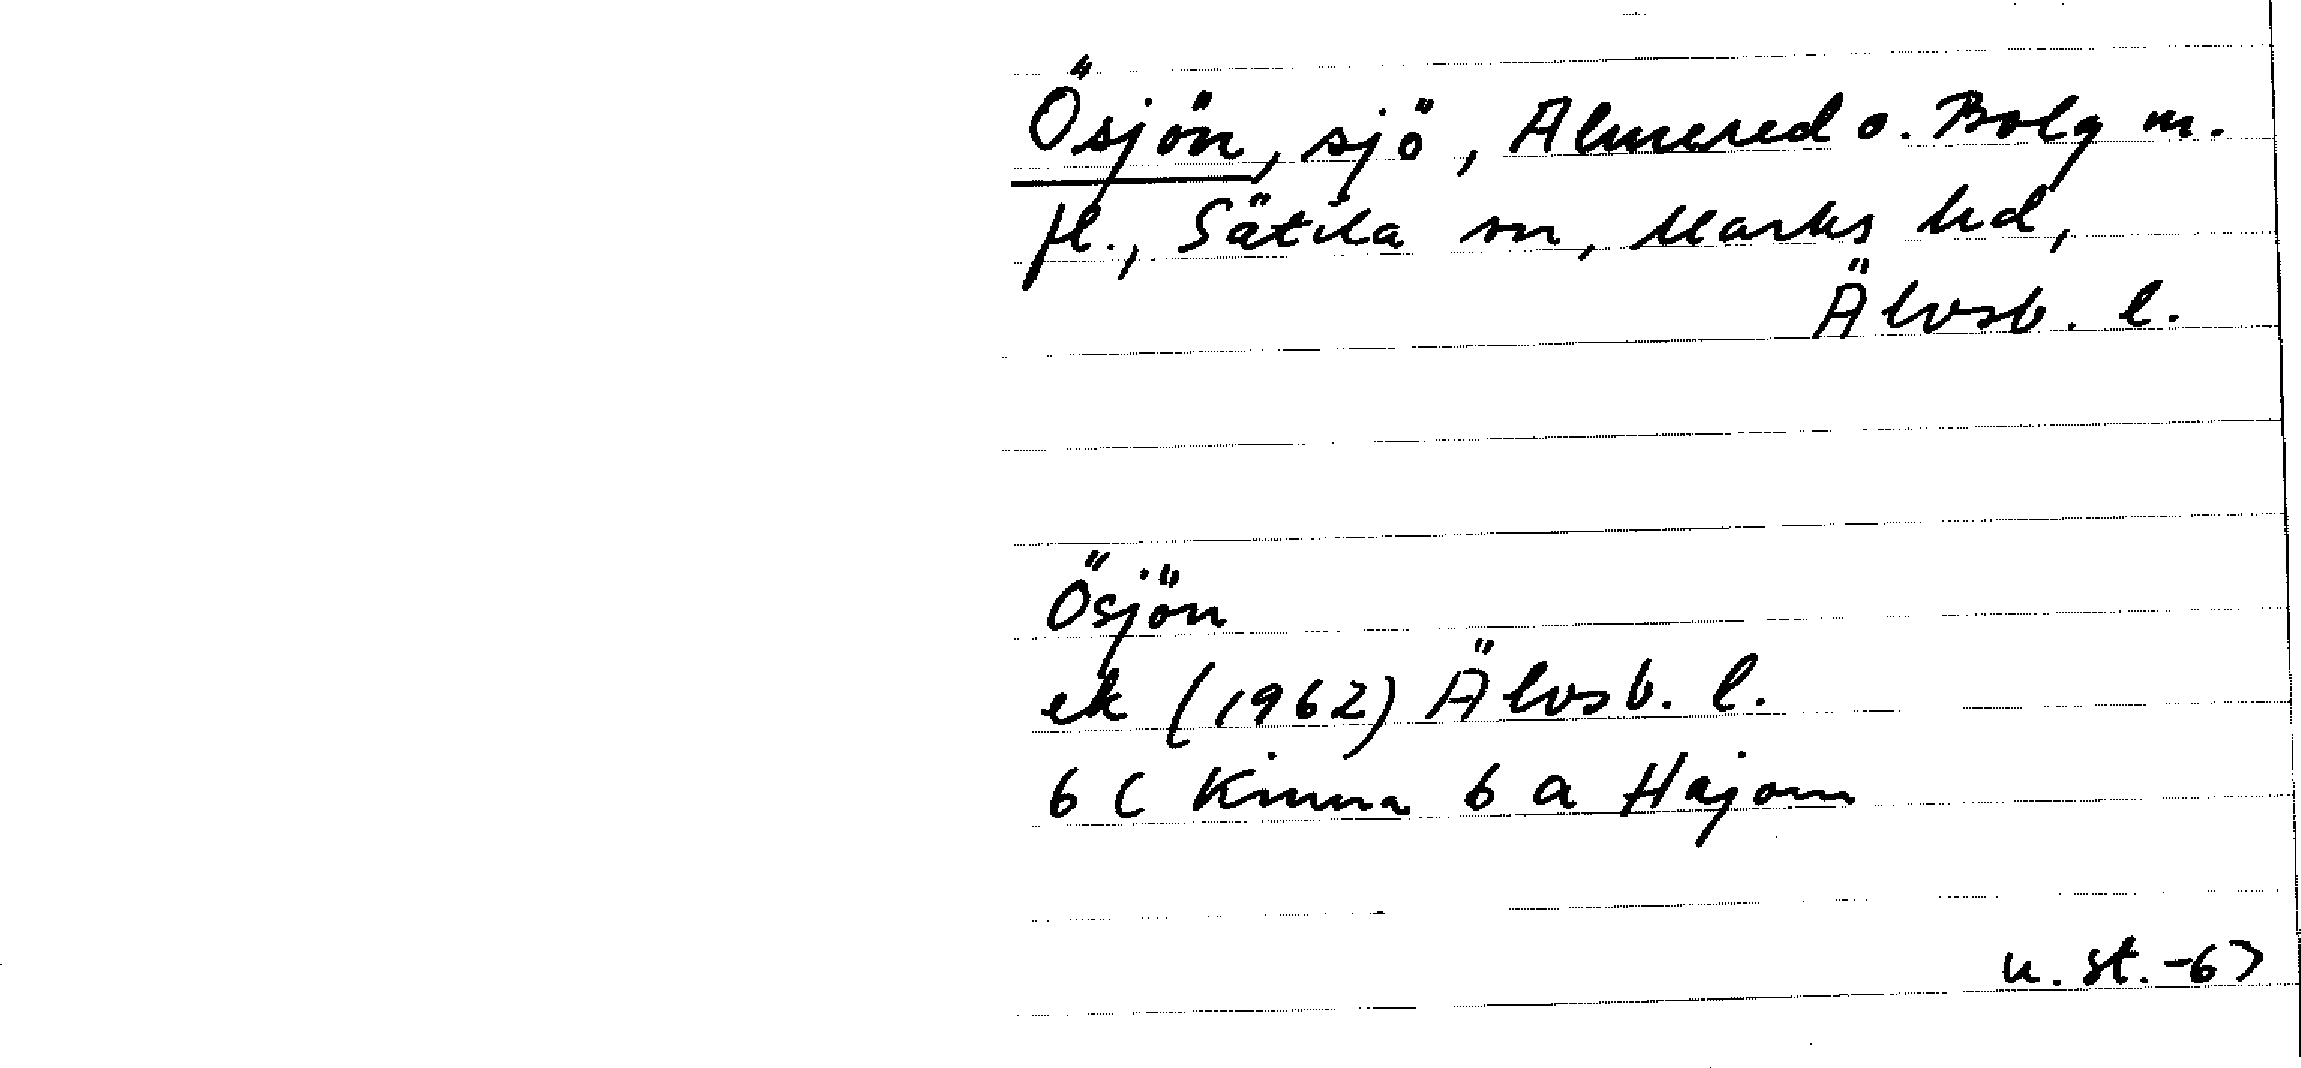 Ösjön, sjö, Almered o. Bolg m.
fl., Sätila sn, Marks hd,
Älvsb. l.
Ösjön
ek (1962) Älvsb. l.
6 C Kinna 6 a Hajom
u. st. -67